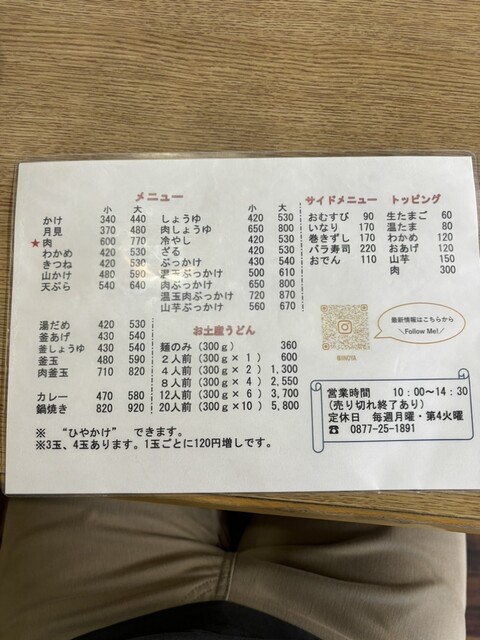 メニュー
小 大
かけ 340 440
月見 370 480
★肉 600 770
わかめ 420 530
きつね 420 530
山かけ 480 590
天ぷら 540 640
湯だめ 420 530
釜あげ 430 540
釜しょうゆ 430 540
釜玉 480 590
肉釜玉 710 820
カレー 470 580
鍋焼き 820 920
小 大
しょうゆ 420 530
肉しょうゆ 650 800
冷やし 420 530
ざる 420 530
ぶっかけ 430 540
温玉ぶっかけ 500 610
肉ぶっかけ 650 800
温玉肉ぶっかけ 720 870
山芋ぶっかけ 560 670
お土産うどん
麺のみ(300g) 360
2人前(300g× 1) 600
4人前(300g× 2) 1,300
8人前(300g× 4) 2,550
12人前(300g× 6) 3,700
20人前(300g×10) 5,800
※ “ひやかけ” できます。
※3玉、4玉あります。1玉ごとに120円増しです。
サイドメニュー
おむすび 90
いなり 170
巻きずし 170
バラ寿司 220
おでん 110
トッピング
生たまご 60
温たま 80
わかめ 120
おあげ 120
山芋 150
肉 300
最新情報はこちらから
＼Follow Me!／
営業時間 10:00〜14:30
(売り切れ終了あり)
定休日 毎週月曜・第4火曜
☎ 0877-25-1891